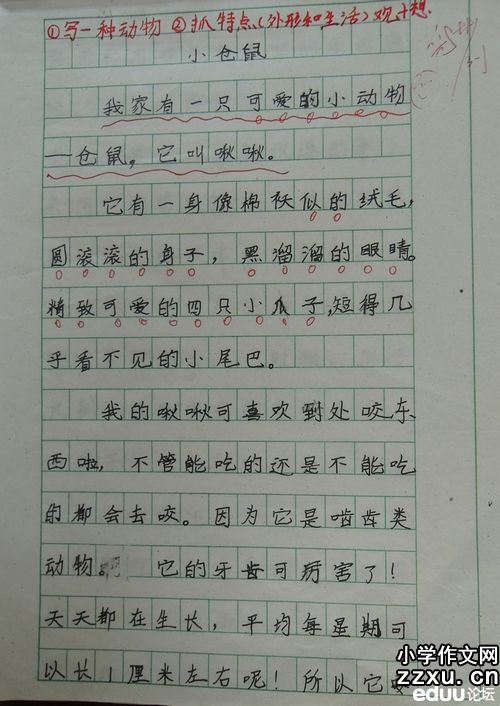 ①写一种动物 ②抓特点(外形和生活)观+想
小仓鼠
我家有一只可爱的小动物
——仓鼠,它叫啾啾。
它有一身像棉袄似的绒毛,
圆滚滚的身子,黑溜溜的眼睛。
精致可爱的四只小爪子,短得几
乎看不见的小尾巴。
我的啾啾可喜欢到处咬东
西啦,不管能吃的还是不能吃
的都会去咬。因为它是啮齿类
动物。它的牙齿可厉害了!
天天都在生长,平均每星期可
以长1厘米左右呢!所以它
小学作文网
zzxu.cn
eduu论坛